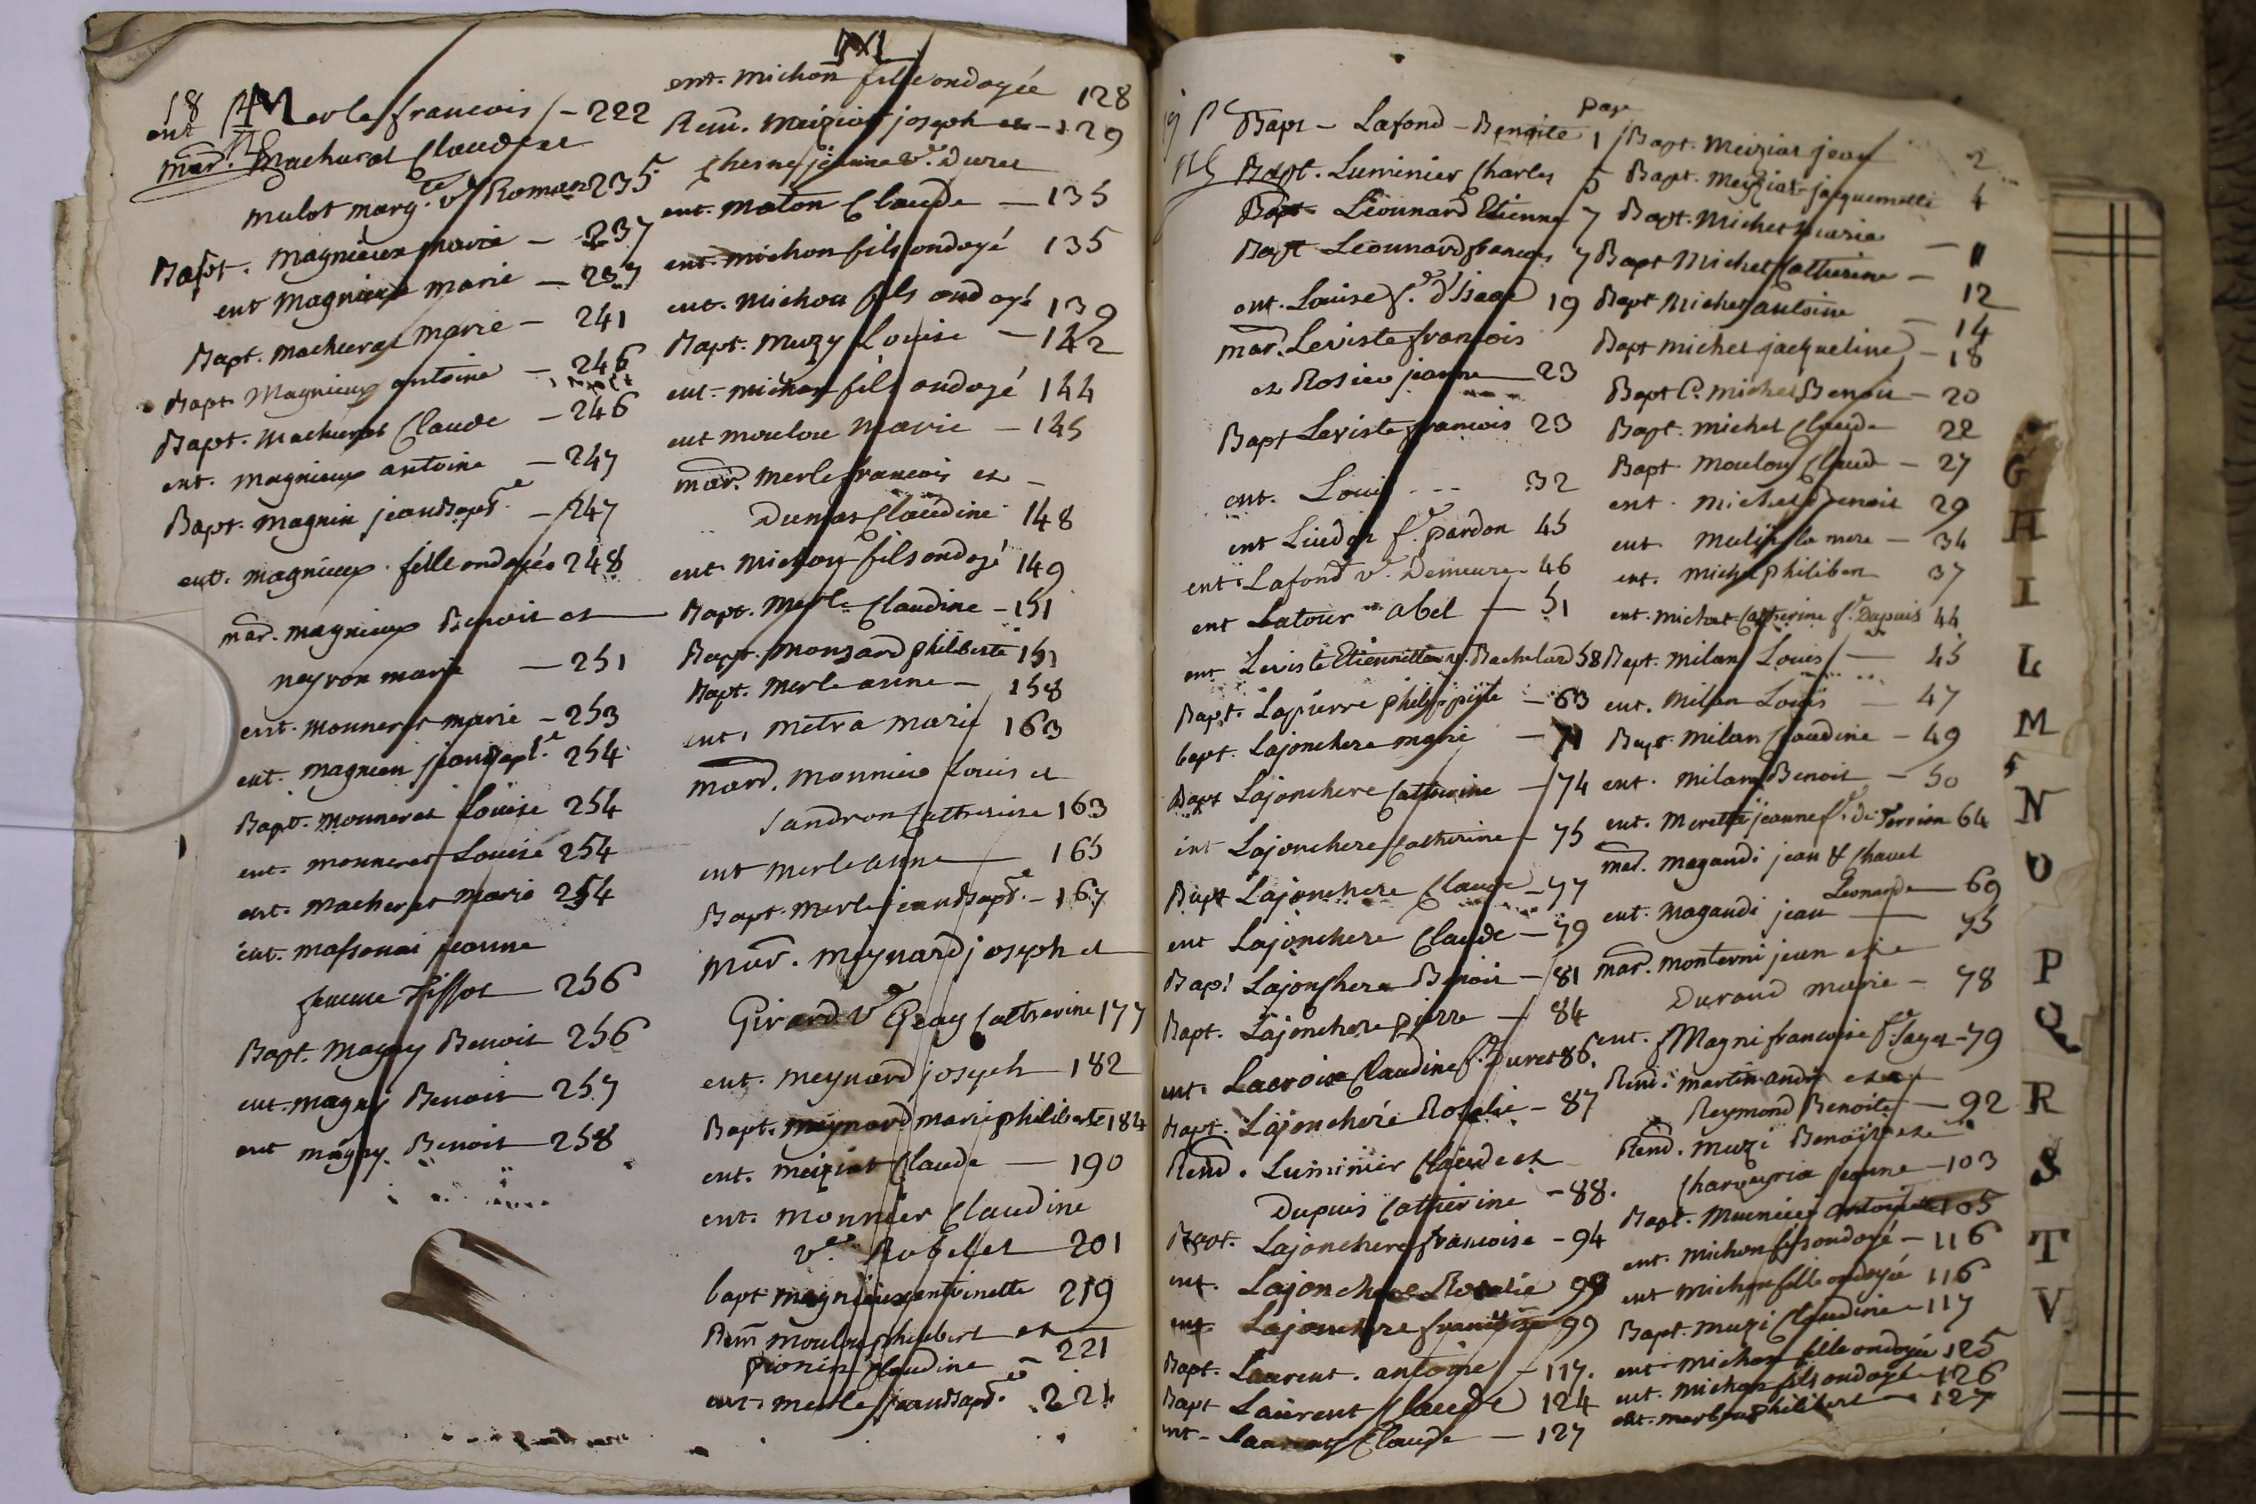 18
ent Merle francois - 222
mar. Machurat Claud et
Mulot marg.te v.e Roman 235
Bapt. Magnieux marie - 237
ent Magnieux marie - 237
Bapt. Machurat Marie - 241
Bapt. Magnieux antoine - 246
Bapt. Machurat Claude - 246
ent. Magnieux antoine - 247
Bapt. Magnin jeanBapt.e - 247
ent. Magnieux fille ondoyée 248
mar. Magnieux Benoit et
neyron marie - 251
ent. Monnerat marie - 253
ent. Magnien jeanBapt.e 254
Bapt. Monnerat Louise 254
ent. Monnerat Louise 254
ent. Macherat Marie 254
ent. Massonai jeanne
femme Tissot 256
Bapt. Magny Benoit 256
ent. Magny Benoit 257
ent Magny Benoit 258
ent. Michon fille ondoyée 128
Rem. Meiziat joseph et - 129
Chesne jeanne v.e Duret
ent. Maton Claude - 135
ent. Michon fils ondoyé 135
ent. Michon fils ondoyé 139
Bapt. Muzy Louise - 142
ent. Michon fils ondoyé 144
ent Moulon Marie - 145
mar. Merle francois et -
Dumas Claudine 148
ent. Michon fils ondoyé 149
Bapt. Merle Claudine - 151
Bapt. Monsard philiberte 151
Bapt. Merle anne - 158
ent. Metra Marie 163
mard. Monnier Louis et
Sandron Catherine 163
ent Merle anne 165
Bapt. Merle jeanBapt.e - 167
Mar. Meynard joseph et
Girard v.e Geay Catherine 177
ent. Meynard joseph 182
Bapt. Meynard marie philiberte 184
ent. Meiziat Claude - 190
ent. Monnier Claudine
v.e Robelet 201
bapt Magnieux antoinette 219
Rem Moulon philibert et
Pionin Claudine - 221
ent. Merle jeanBapt.e 221
page
Bapt - Lafond - Benoite 1
Bapt. Luminier Charles 5
Bapt. Léonnard Etienne 7
Bapt Leonnard francois 7
ent. Louise f.e d'Isaac 19
mar. Leviste francois
et Rosier jeanne 23
Bapt Leviste francois 23
ent. Louis 32
ent Liudon f.e pardon 45
ent Lafond v.e Demeure 46
ent Latour abel - 51
ent Leviste Etiennette v.e Bachelard 58
Bapt. Lapierre philippe - 63
bapt. Lajonchere marie - 71
Bapt Lajonchere Catherine - 74
ent Lajonchere Catherine - 75
Bapt Lajonchere Claude - 77
ent Lajonchere Claude - 79
Bapt Lajonchere Benoit - 81
Bapt. Lajonchere pierre - 84
ent. Lacroix Claudine f.e Duret 86
Bapt. Lajonchere Rosalie - 87
Remd. Luminier Claude et
Dupuis Catherine - 88.
Bapt. Lajonchere francoise - 94
ent. Lajonchere Rosalie 99
ent Lajonchere francoise 99
Bapt. Laurent antoine - 117.
Bapt Laurent Claude 124
ent - Laurent Claude - 127
Bapt. Meiziat jean 2
Bapt. Meiziat jaquemette 4
Bapt. Michet Marie - 11
Bapt Michet Catherine - 12
Bapt Michet antoine - 14
Bapt Michet jacqueline - 18
Bapt C. Michet Benoit - 20
Bapt. Michet Claude 22
Bapt. Moulon Claud - 27
ent. Michet Benoit 29
ent. Mulin la mere - 34
ent. Michet philibert 37
ent. Michat Catherine f.e Dupuis 44
Bapt. Milan Louis - 45
ent. Milan Louis - 47
Bapt. Milan Claudine - 49
ent. Milan Benoit - 50
ent. Moretti jeanne f.e de Terrion 64
mar. Magaudi jean & Chavel
Leonarde - 69
ent. Magaudi jean 75
mar. Monterni jean et
Durand Marie - 78
ent. Magni francoise f.e Sayet - 79
Remd. Martin andré et
Reymond Benoite - 92
Remd. Muzi Benoit et
Charveyria jeanne - 103
Bapt. Munnier antoinette 105
ent. Michon fils ondoyé - 116
ent Michon fille ondoyée 116
Bapt. Muzi Claudine - 117
ent Michon fille ondoyée 125
ent. Michon fils ondoyé 126
ent. Merle philibert - 127
G
H
I
L
M
N
O
P
Q
R
S
T
V